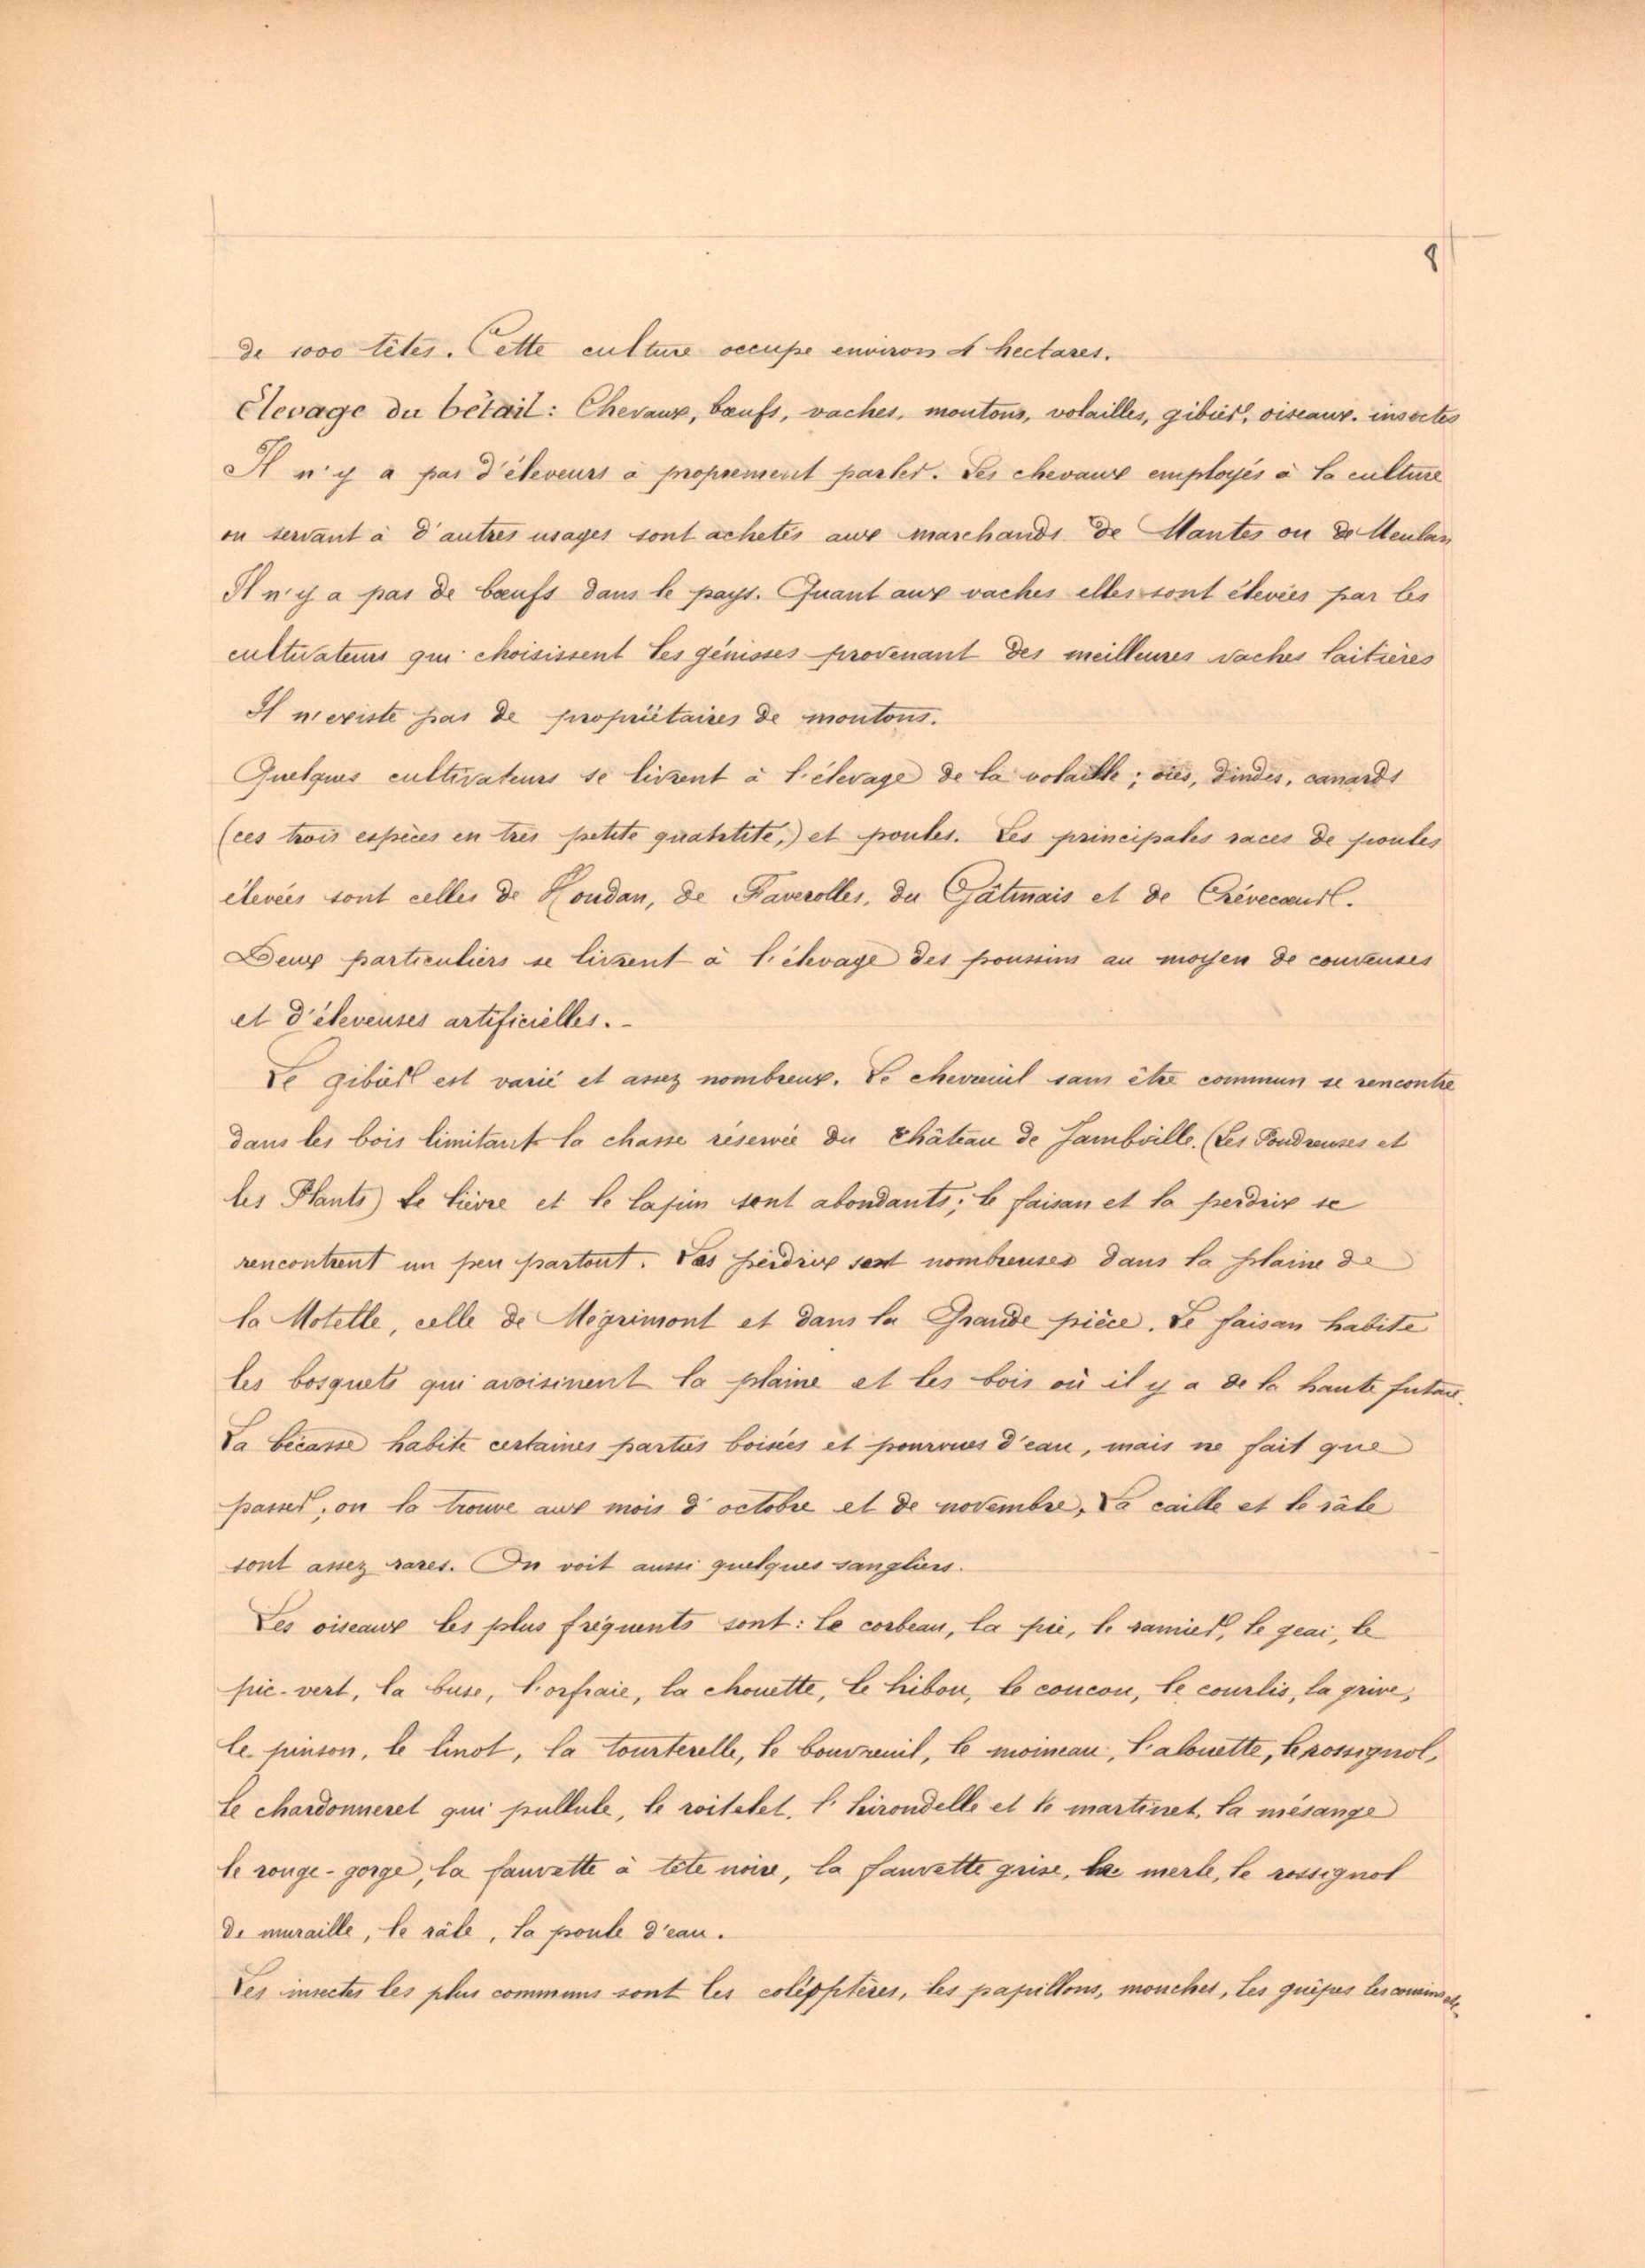 8
de 1000 têtes. Cette culture occupe environ 4 hectares.
Elevage du bétail : Chevaux, bœufs, vaches, moutons, volailles, gibier, oiseaux. insectes
Il n'y a pas d'éleveurs à proprement parler. Les chevaux employés à la culture
ou servant à d'autres usages sont achetés aux marchands de Mantes ou de Meulan
Il n'y a pas de bœufs dans le pays. Quant aux vaches elles sont élevées par les
cultivateurs qui choisissent les génisses provenant des meilleures vaches laitières
Il n'existe pas de propriétaires de moutons.
Quelques cultivateurs se livrent à l'élevage de la volaille ; oies, dindes, canards
(ces trois espèces en très petite quantité,) et poules. Les principales races de poules
élevées sont celles de Houdan, de Faverolles, du Gâtinais et de Crévecœur.
Deux particuliers se livrent à l'élevage des poussins au moyen de couveuses
et d'éleveuses artificielles. -
Le gibier est varié et assez nombreux. Le chevreuil sans être commun se rencontre
dans les bois limitant la chasse réservée du Château de Jambville. (Les Poudreuses et
les Plants) Le lièvre et le lapin sont abondants ; le faisan et la perdrix se
rencontrent un peu partout. Les perdrix sont nombreuses dans la plaine de
la Motelle, celle de Mégrimont et dans la Grande pièce. Le faisan habite
les bosquets qui avoisinent la plaine et les bois où il y a de la haute futaie.
La bécasse habite certaines parties boisées et pourvues d'eau, mais ne fait que
passer ; on la trouve aux mois d'octobre et de novembre, La caille et le râle
sont assez rares. On voit aussi quelques sangliers.
Les oiseaux les plus fréquents sont : le corbeau, la pie, le ramier, le geai, le
pic-vert, la buse, l'orfraie, la chouette, le hibou, le coucou, le courlis, la grive,
le pinson, le linot, la tourterelle, le bouvreuil, le moineau, l'alouette, le rossignol,
le chardonneret qui pullule, le roitelet, l'hirondelle et le martinet, la mésange
le rouge-gorge, la fauvette à tête noire, la fauvette grise, le merle, le rossignol
de muraille, le râle, la poule d'eau.
Les insectes les plus communs sont les coléoptères, les papillons, mouches, les guêpes les cousins etc